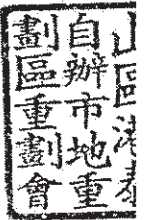 區
自辦市地重
劃區重劃會